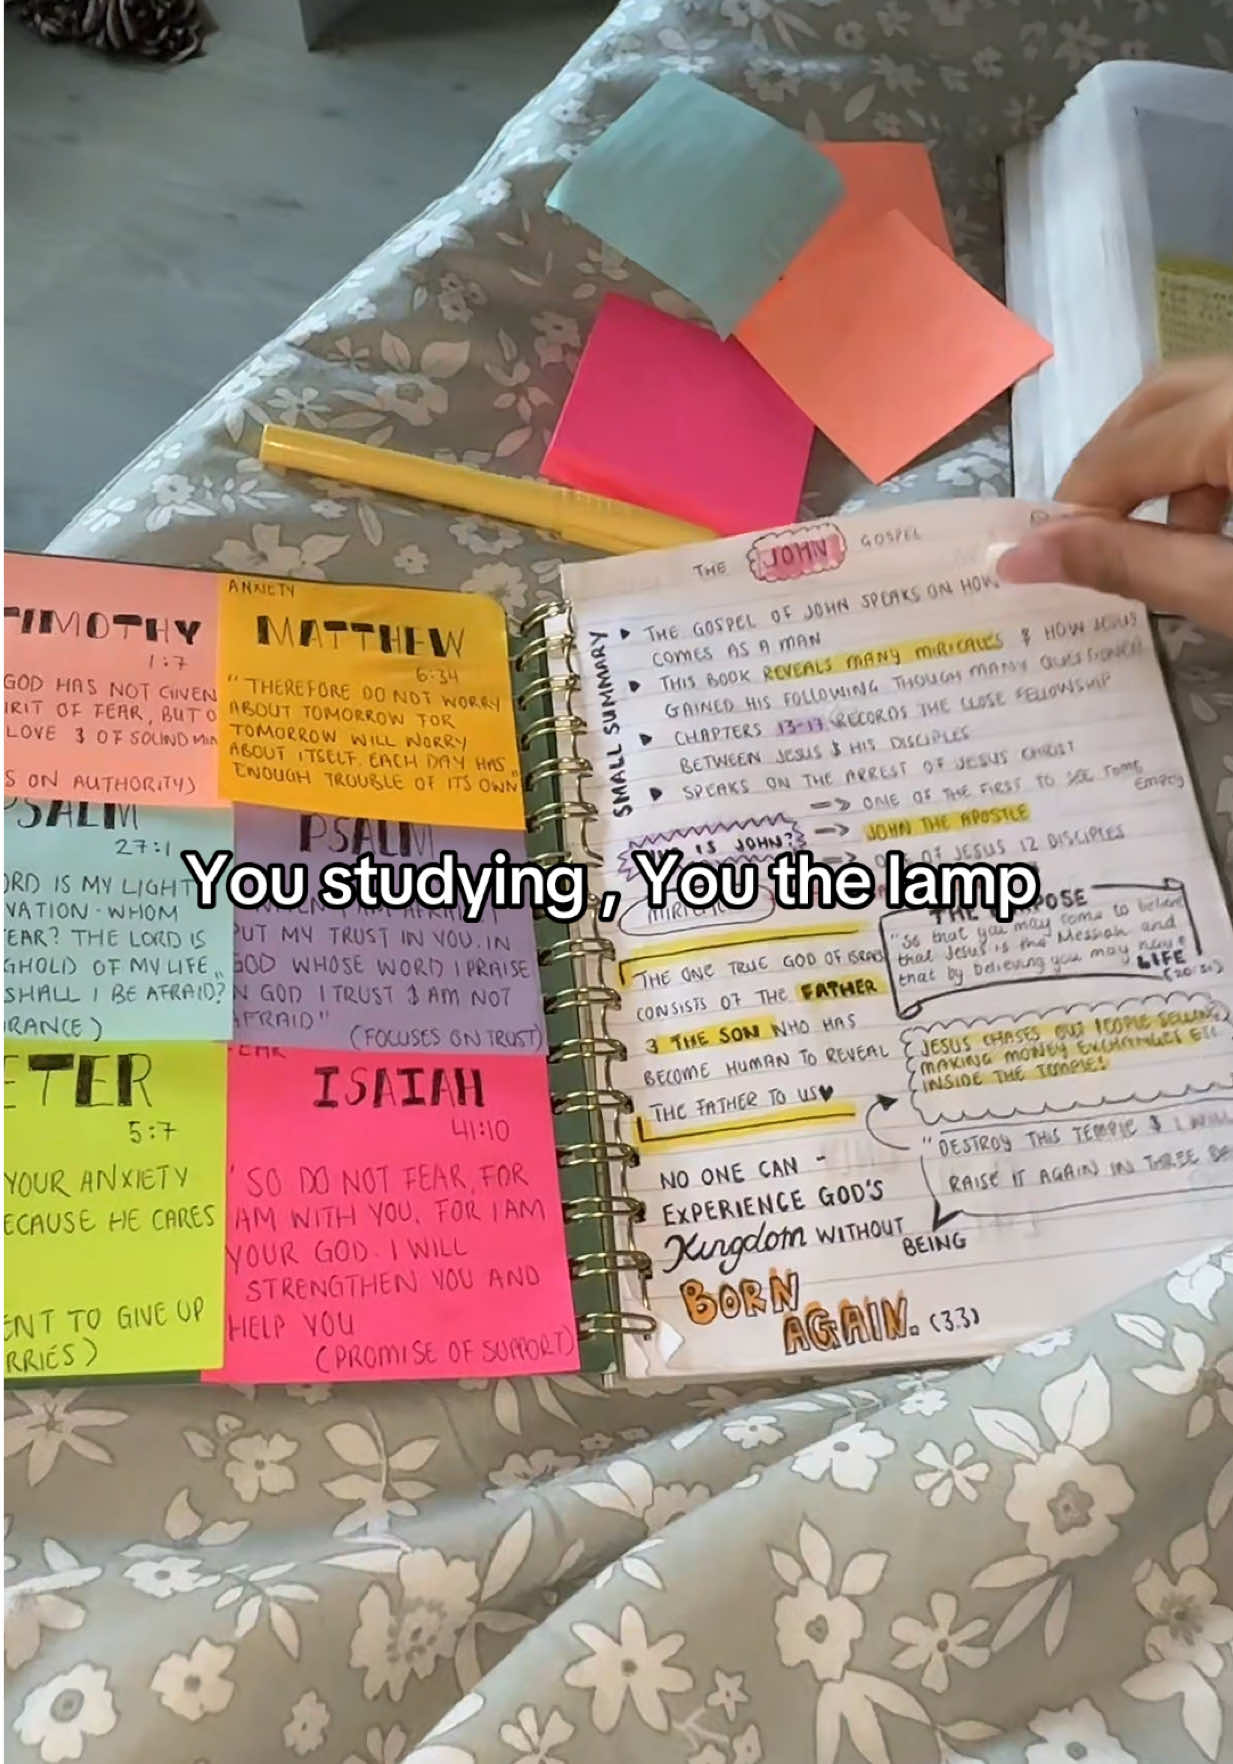 TIMOTHY
1:7
GOD HAS NOT GIVEN
IRIT OF FEAR, BUT O
LOVE & OF SOUND MIN
S ON AUTHORITY)
ANXIETY
MATTHEW
6:34
"THEREFORE DO NOT WORRY
ABOUT TOMORROW FOR
TOMORROW WILL WORRY
ABOUT ITSELF. EACH DAY HAS
ENOUGH TROUBLE OF ITS OWN"
PSALM
27:1
ORD IS MY LIGHT
VATION - WHOM
EAR? THE LORD IS
GHOLD OF MY LIFE
SHALL I BE AFRAID?
RANCE)
PSALM
PUT MY TRUST IN YOU. IN
GOD WHOSE WORD I PRAISE
N GOD I TRUST & AM NOT
AFRAID"
(FOCUSES ON TRUST)
ETER
5:7
YOUR ANXIETY
ECAUSE HE CARES
ENT TO GIVE UP
RRIES)
FEAR
ISAIAH
41:10
"SO DO NOT FEAR, FOR
I AM WITH YOU. FOR I AM
YOUR GOD. I WILL
STRENGTHEN YOU AND
HELP YOU
(PROMISE OF SUPPORT)
You studying , You the lamp
THE JOHN GOSPEL
SMALL SUMMARY
THE GOSPEL OF JOHN SPEAKS ON HOW
COMES AS A MAN
THIS BOOK REVEALS MANY MIRICALES & HOW JESUS
GAINED HIS FOLLOWING THOUGH MANY QUESTIONED
CHAPTERS 13-17 RECORDS THE CLOSE FELLOWSHIP
BETWEEN JESUS & HIS DISCIPLES
SPEAKS ON THE ARREST OF JESUS CHRIST
IS JOHN?
=> ONE OF THE FIRST TO SEE TOMB
EMPTY
=> JOHN THE APOSTLE
OF JESUS 12 DISCIPLES
THE ONE TRUE GOD OF ISRAEL
CONSISTS OF THE FATHER
& THE SON WHO HAS
BECOME HUMAN TO REVEAL
THE FATHER TO US♥
THE
"So that you may come to believe
that Jesus is the Messiah and
that by believing you may have
LIFE
(20:31)
JESUS CHASES OUT PEOPLE SELLING,
MAKING MONEY EXCHANGES ETC
INSIDE THE TEMPLE!
"DESTROY THIS TEMPLE & I WILL
RAISE IT AGAIN IN THREE DA
NO ONE CAN -
EXPERIENCE GOD'S
Kingdom WITHOUT
BEING
BORN
AGAIN. (3:3)